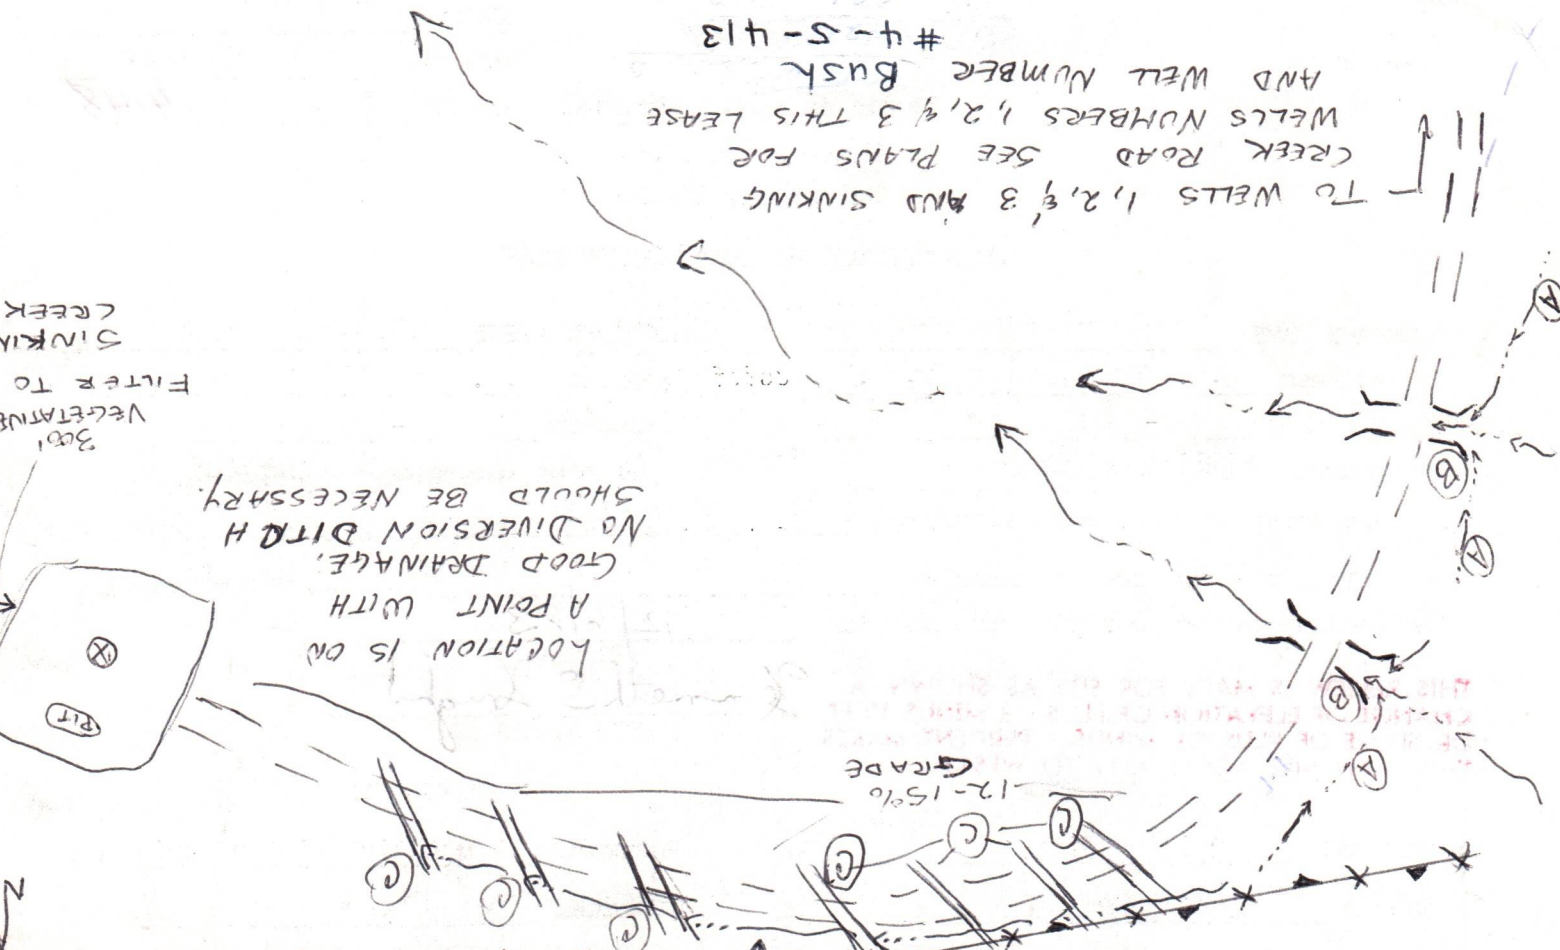 N
C
C
C
C
C
C
12-15%
GRADE
A
B
PIT
X
LOCATION IS ON
A POINT WITH
GOOD DRAINAGE.
NO DIVERSION DITCH
SHOULD BE NECESSARY.
A
B
300'
VEGETATIVE
FILTER TO
SINKIN
CREEK
A
TO WELLS 1,2,& 3 AND SINKING
CREEK ROAD SEE PLANS FOR
WELLS NUMBERS 1, 2, & 3 THIS LEASE
AND WELL NUMBER BUSH
#4-S-413